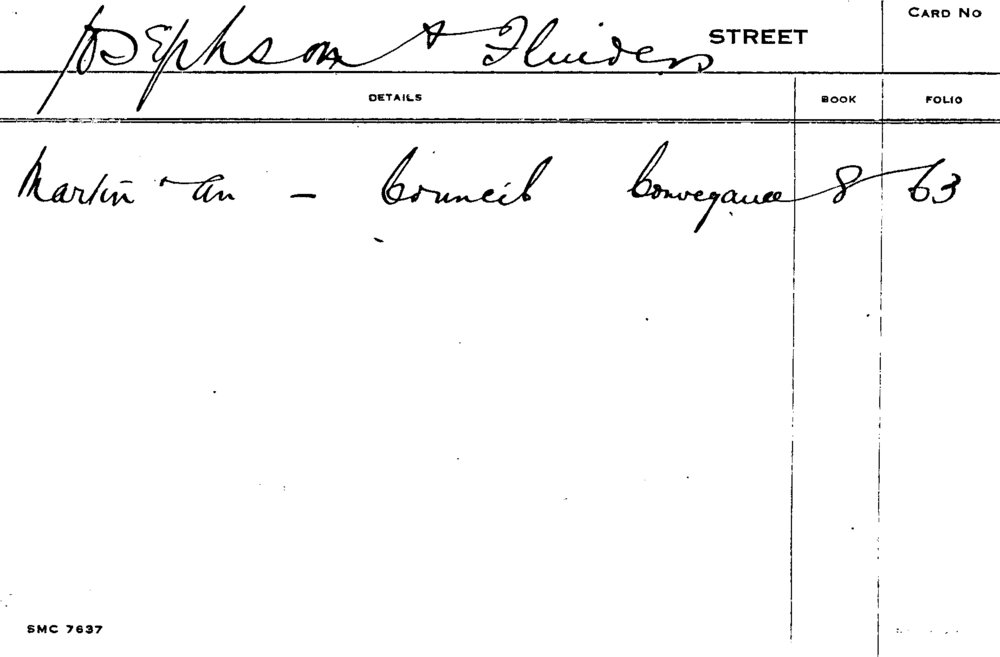 Josephson & Flinders STREET CARD NO
DETAILS BOOK FOLIO
Martin & an – Council Conveyance 8 63
SMC 7637